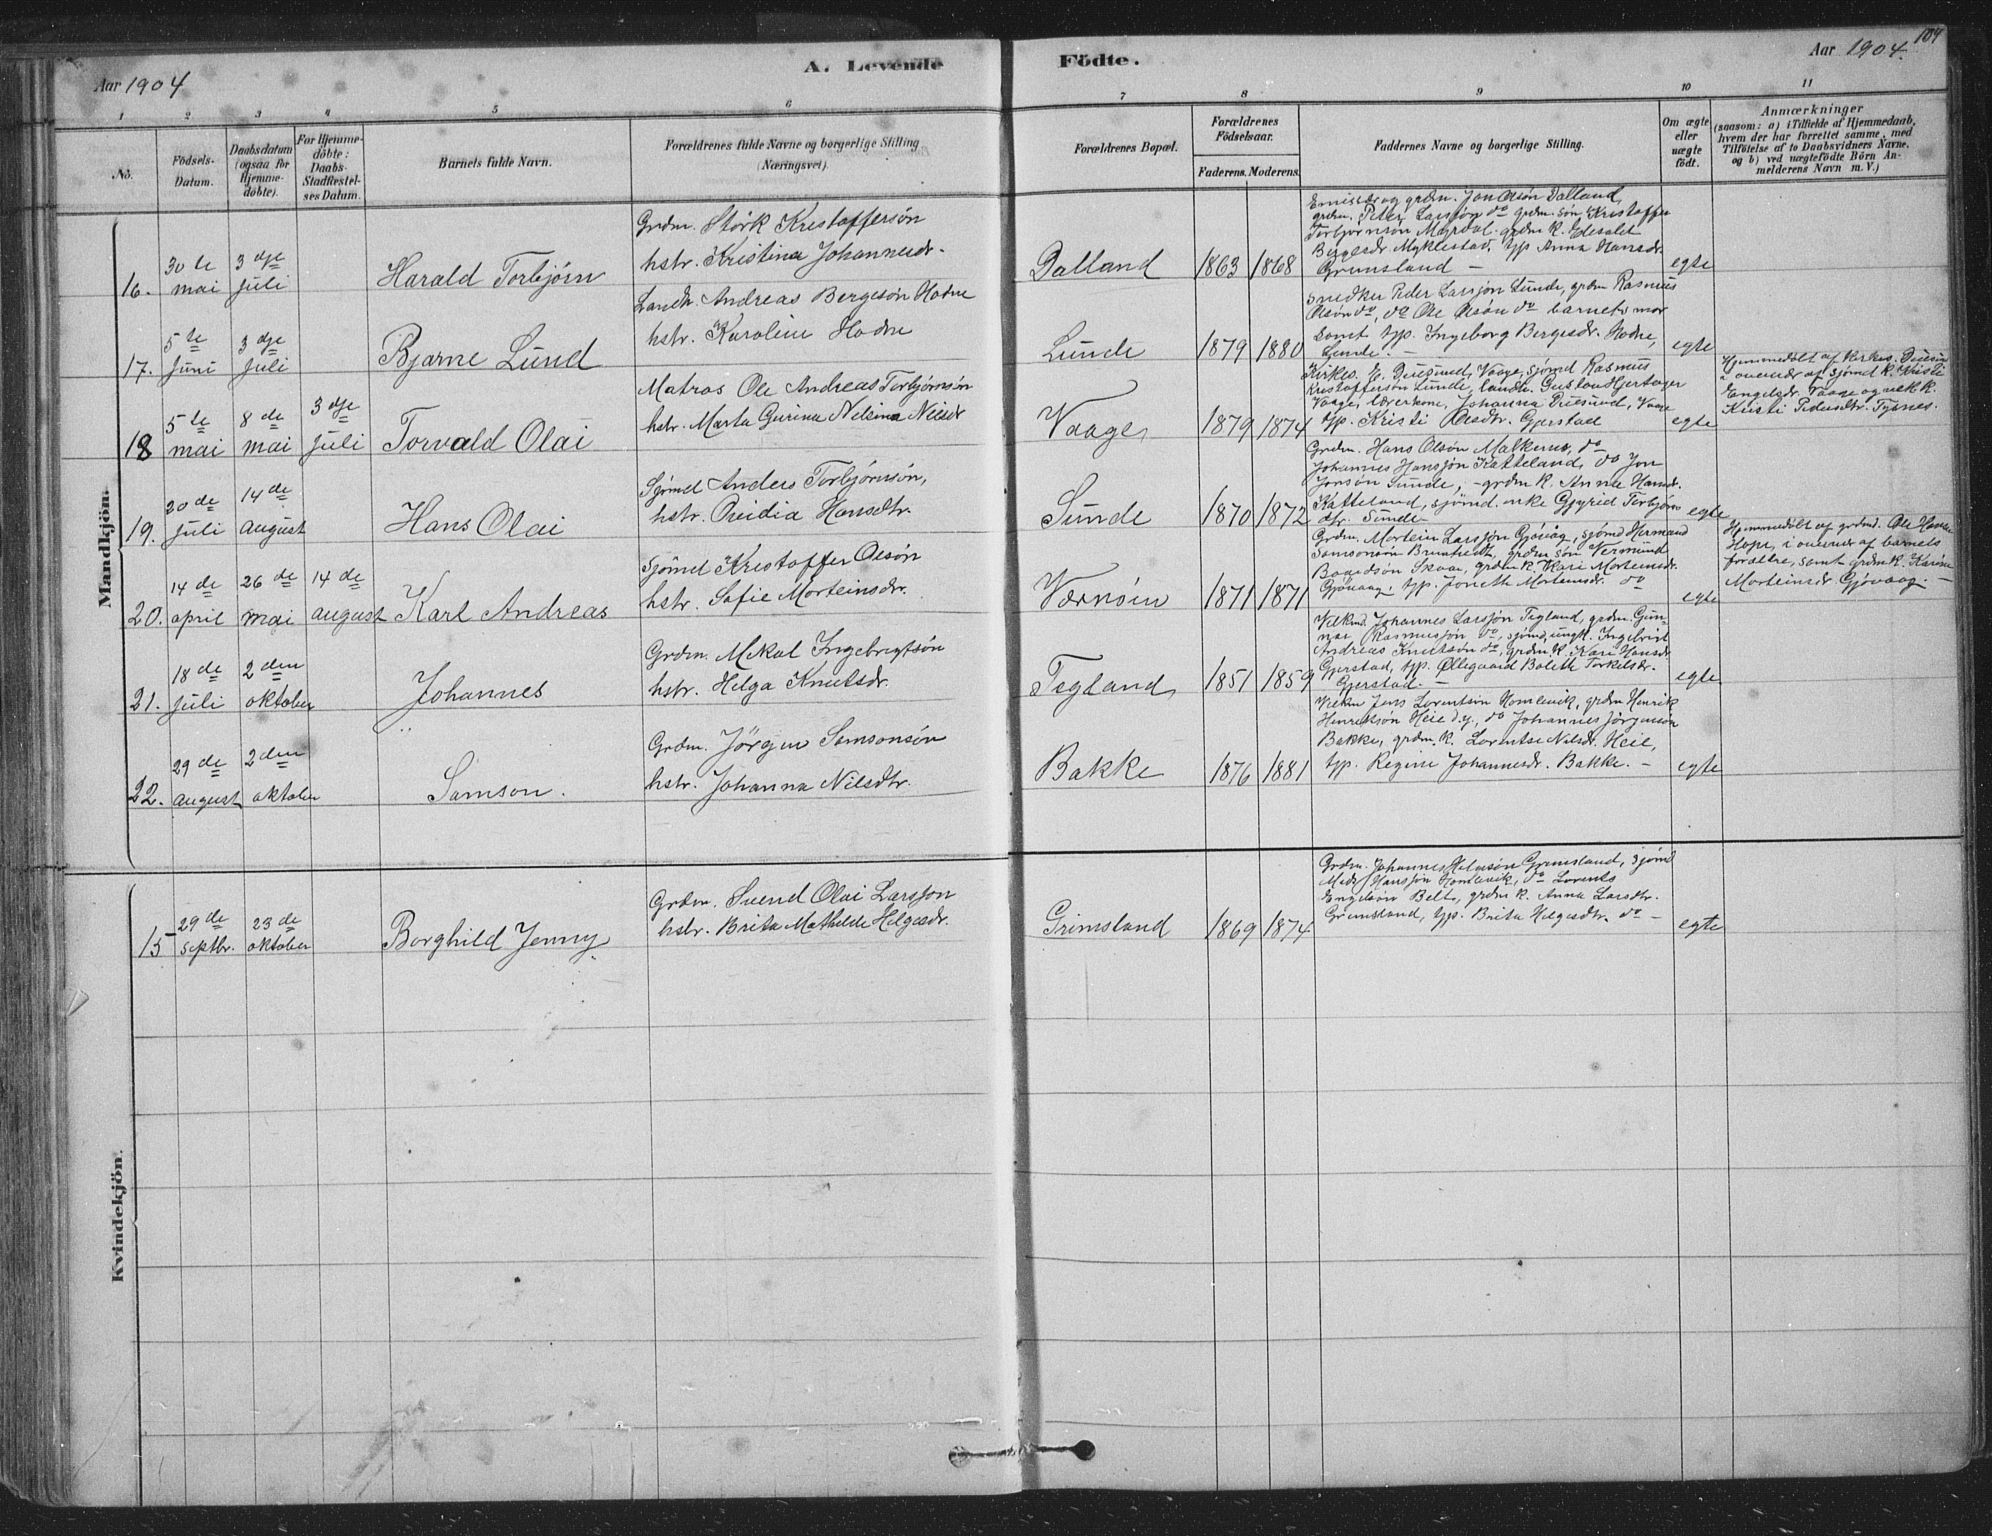 Aar 1904
A. Levende
Födte.
Aar 1904.
104
1 2 3 4 5 6 7 8 9 10 11
No.
Födsels-
Datum.
Daabsdatum
(ogsaa for
Hjemme-
döbte).
For Hjemme-
döbte:
Daabs-
Stadfæstel-
ses Datum.
Barnets fulde Navn.
Forældrenes fulde Navne og borgerlige Stilling
(Næringsvei).
Forældrenes Bopæl.
Forældrenes
Födselsaar.
Faderens. Moderens.
Faddernes Navne og borgerlige Stilling.
Om ægte
eller
uægte
födt.
Anmærkninger
(saasom: a) i Tilfælde af Hjemmedaab,
hvem der har forrettet samme, med
Tilföielse af to Daabsvidners Navne,
og b) ved uægtefödte Börn An-
melderens Navn m. V.)
Mandkjön.
16.
30te
mai
3dje
juli
Harald Torbjørn
Grdm. Størk Kristoffersøn
hstr. Kristina Johannesdr.
Dalland
1863 1868
grdm. Jon Olsøn Dalland,
grdm. Peter Larsjøn do grdm. søn Kristoffer
Torbjørnsøn Myrdal. grdm k.
Bergesdr. Myklestad, typ Anna Hansdr.
Grimsland —
egte
17.
5te
juni
3dje
juli
Bjarne Lund
Landh. Andreas Bergesøn Hodne
hstr. Karoline Hodne
Lunde
1879 1880
Snedker Peder Larsjøn Lunde, grdm Rasmus
Olsøn do, do Ole Olsøn do barnets mor
samt typ. Ingeborg Bergesdr. Hodne,
Lunde. —
egte
18
5te
mai
8de
mai
3dje
juli
Torvald Olai
Matros Ole Andreas Torbjørnsøn
hstr. Marta Gurina Nelsina Nilsdr
Vaage
1879 1874
Kirkes. Duesund, Vaage, sjømd Rasmus
Kristoffersøn Lunde, landh. Gustav Hjertager
Vaage, lærerkone, Johanna Duesund, Vaage
typ. Kristi Olsdtr. Gjerstad
egte
Hjemmedøbt af kirkes. Duesund
i overvær af sjømd k. Kristi
Engelsdr. Vaage og
Kristi Pedersdtr. Tysnes.
19.
20de
juli
14de
august
Hans Olai
Sjømd Anders Torbjørnsøn,
hstr. Hansdtr.
Sunde
1870 1872
Grdm. Hans Olsøn Malkenes, do
Johannes Hansjøn Katteland, do Jon
Jonsøn Sunde, – grdm k. Anna Hansdr.
Katteland, sjømd. enke Gjyrid Torbjørns
dtr. Sunde
egte
20.
14de
april
26de
mai
14de
august
Karl Andreas
Sjømd Kristoffer Olsøn
hstr. Sofie Morteinsdr.
Værnøin
1871 1871
Grdm. Mortein Larsjøn Gjøvaag, sjømd Hermand
Samsonsøn grdm søn Vermund
Baardsøn Skaar, grdm k. Kari Morteinsdr.
Gjøvaag, typ. Joneth Morteinsdr. do
egte
Hjemmedøbt af grdmd. Ole Hansen
Hope, i overvær af barnets
foreldre, samt grdm k. Karina
Morteinsdr Gjøvaag. —
21.
18de
juli
2den
oktober
Johannes
Grdm. Mikal Ingebrigtsøn
hstr. Helga Knutsdr.
Tegland
1851 1859
Johannes Larsjøn Tegland, grdm. Gun-
nar Rasmusjøn do, sjømd, ungk. Ingebrigt
Andreas Knutsøn do, grdm. k. Kari Hansdr.
Gjerstad, typ. Øllegaard Boleth Torkelsdr.
Gjerstad. —
egte
22.
29de
august
2den
oktober
Samson.
Grdm. Jørgen Samsonsøn
hstr. Johanna Nilsdtr.
Bakke
1876 1881
Jens Lorentsøn Homlevik, grdm Henrik
Henriksøn Heie d.y., do Johannes Jørgensøn
Bakke, grdm. k. Lorentse Nilsdr. Heie,
typ. Regine Johannesdr. Bakke. —
egte
Kvindekjön.
15
29de
septbr.
23de
oktober
Borghild Jenny
Grdm. Svend Olai Larsjøn
hstr. Brita Mathilde Helgesdr.
Grimsland
1869 1874
Grdm. Johannes Helgesøn Grimsland, sjømd
Hansjøn Homlevik, do Lorents
Engelsøn Belt, grdm k. Anna Larsdtr.
Grimsland, typ. Brita Helgesdtr. do —
egte